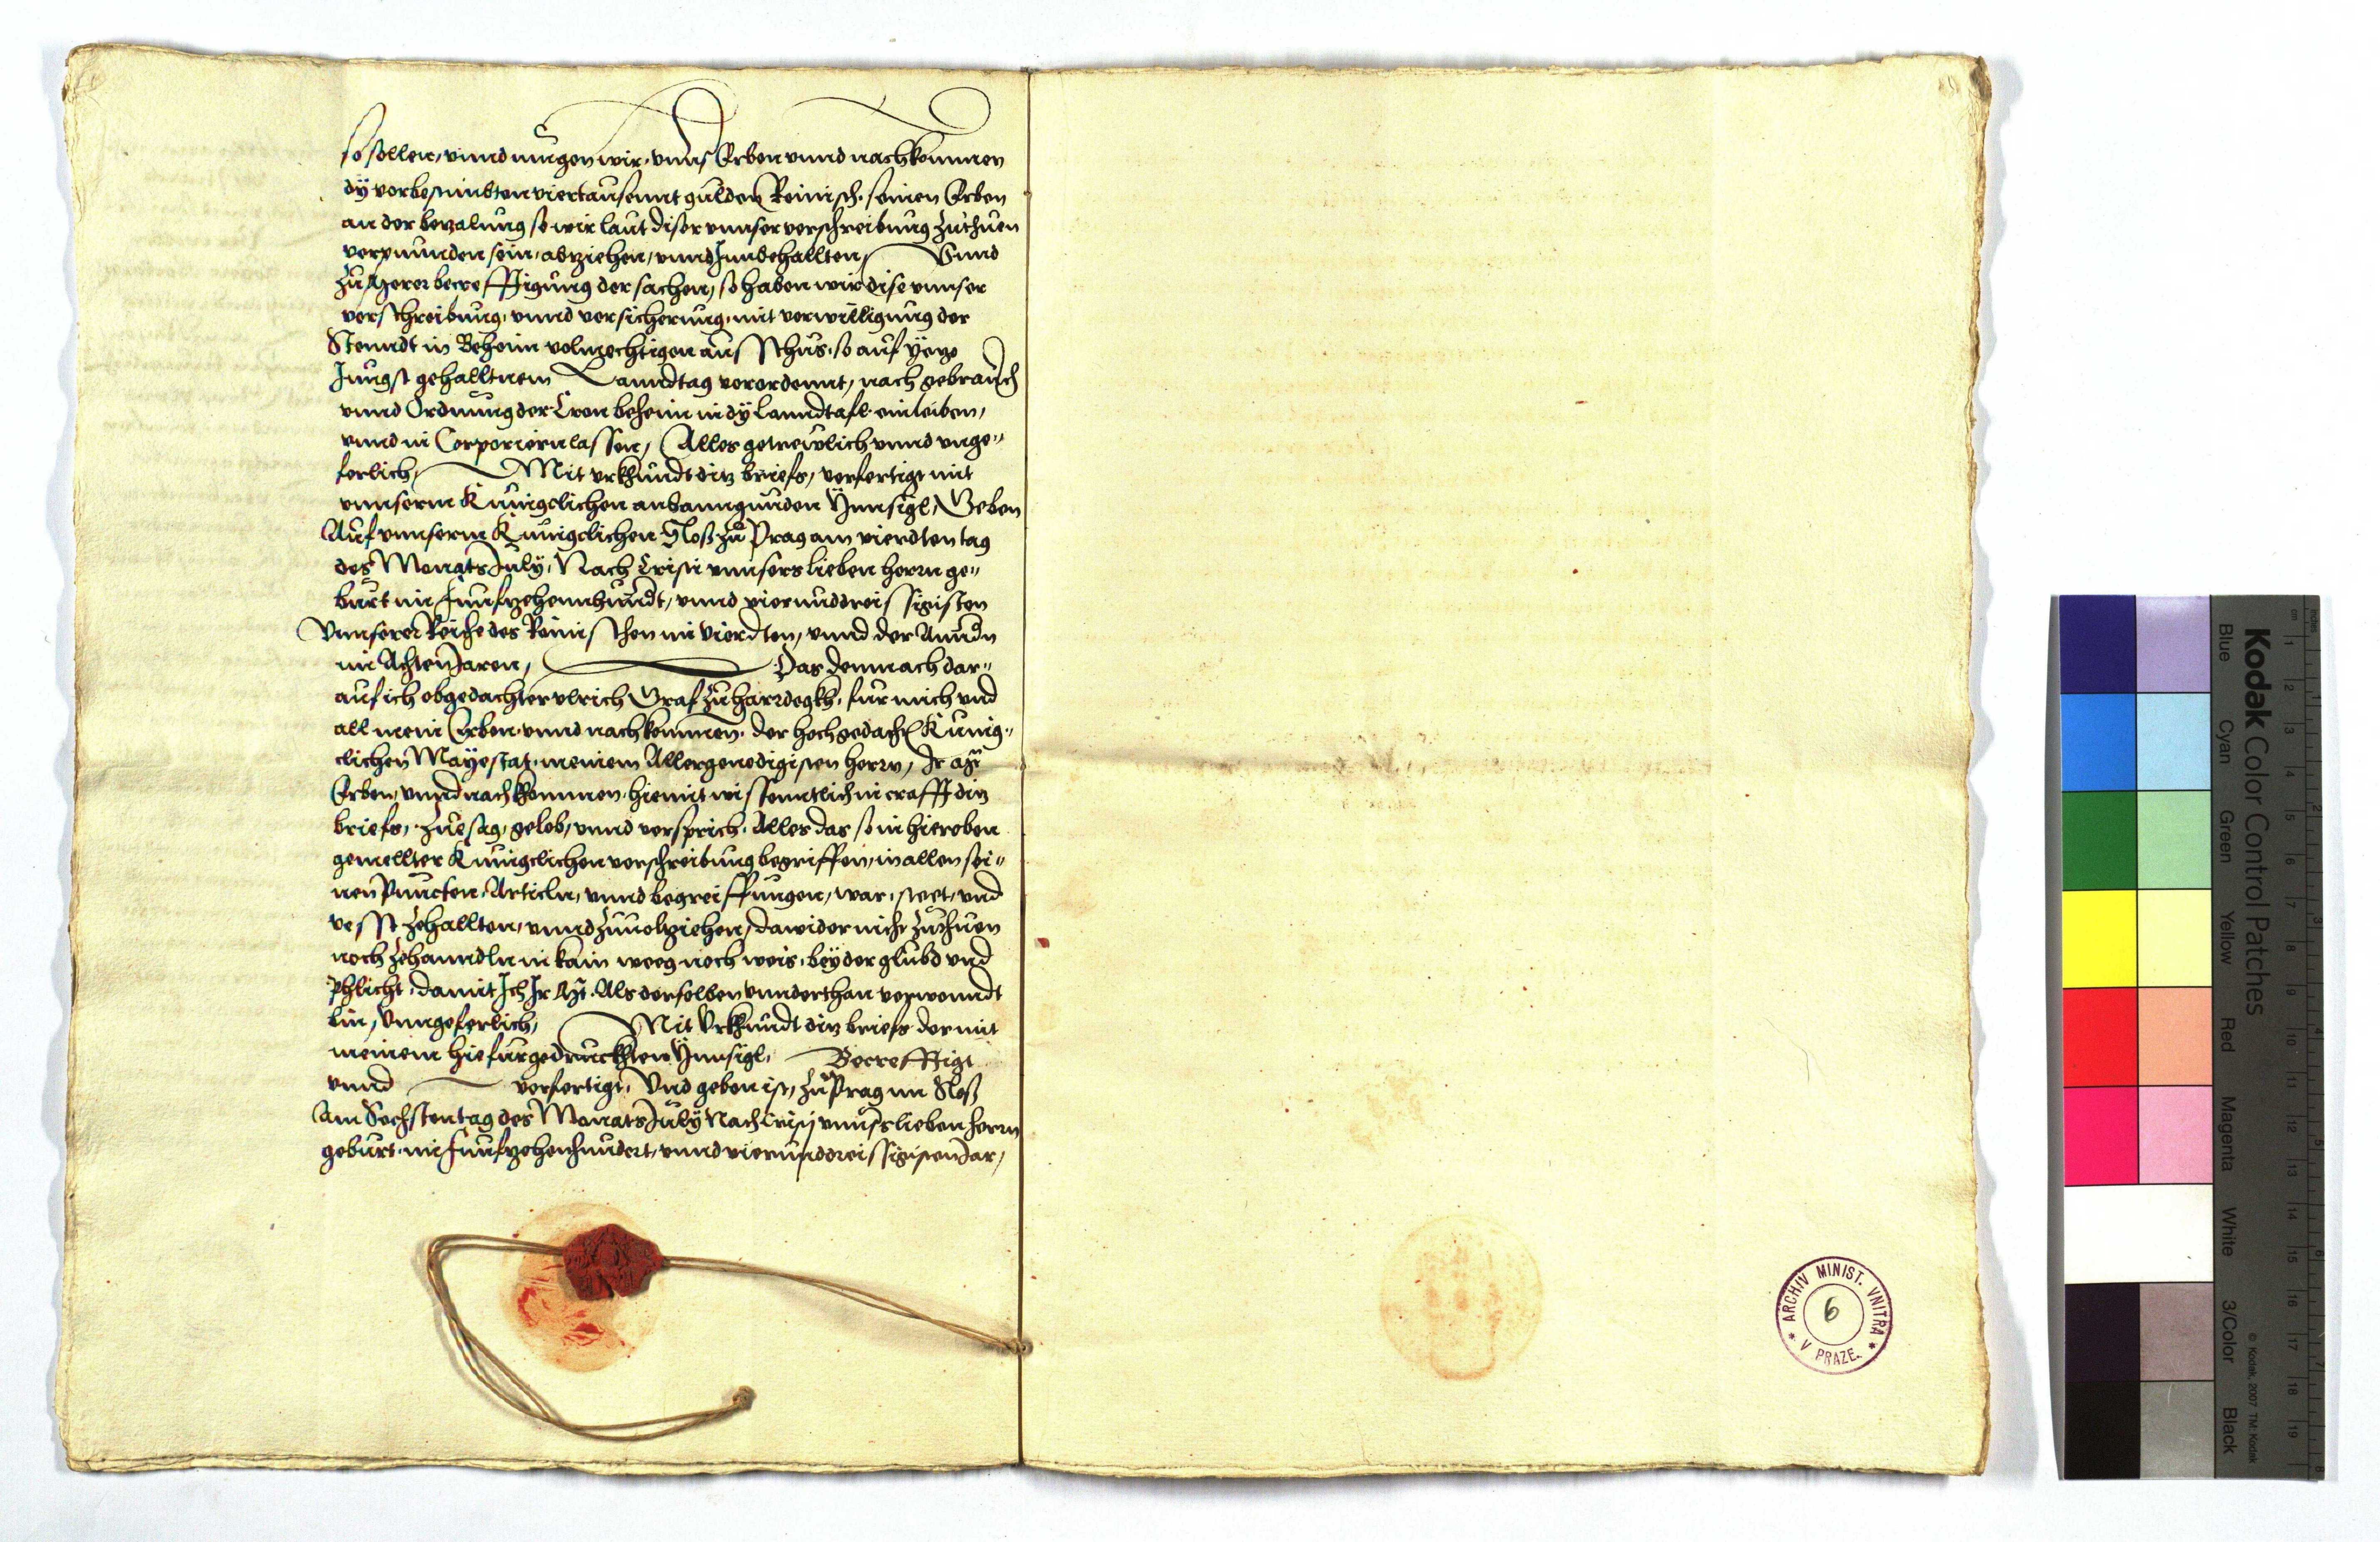 so sollen, vnnd mugen wir, vnns Erben vnnd nachkommen
dÿ vorbestimbten viertausennt gulden Reinisch, seinen Erben
an der bezalung so wir laut diser vnnser verschreibung zuthuen
verpunnden sein, abziehen, vnnd Innbehallten, Vnnd
zu becrefftigung der sachen, so haben wir dise vnnser
verschreibung, vnnd versicherung, mit verwilligung der
Stenndt in Beheim volmechtigen ausschus, so auf
Jungst gehalltnem Lanndtag verordennt, nach gebrauch
vnnd Ordnung der Cron beheim in dÿ Lanndtafl einleiben,
vnnd in Corporiern lassen, Alles getrewlich vnnd vnge„
ferlich, Mit vrkhundt ditz briefs, verfertigt mit
vnnserm Kunigclichen anhanngunden Ynnsigl, Geben
Auf vnnserm Kunigclichen Sloß zu Prag am vierdten tag
des Monats July, Nach Cristi vnnsers lieben herrn ge„
burt im funfzehennhundt, vnnd vierunddreissigisten
Vnnserer Reiche des Römischen im vierdten, vnnd der Anndn
im Achten Jaren, Das demnach dar„
auf ich obgedachter vlrich Graf zu hardegkh, fur mich vnd
all mein Erben vnnd nachkommen, der hochgedacht Kunig„
clichen Mayestat, meinem Allergenedigisten herrn, Ir
Erben, vnnd nachkhommen, hiemit wissenntlich in crafft ditz
briefs, zuesag, gelob, vnnd versprich, Alles das so in hieroben
gemellter Kunigclichen verschreibung begriffen, in allen sei„
nen Puncten, Articln, vnnd begreiffungen, war, steet, vnd
vesst zehallten, vnnd zuuolziehen, dawider nicht zuthuen
noch zehanndln in kain weeg noch weis, beÿ der glubd vnd
phlicht, damit Ich Ir Mt. Als derselben vnnderthan verwonndt
bin, Vnngeferlich, Mit Vrkhundt ditz briefs der mit
meinem hiefurgedruckhten Ynnsigl, Becrefftigt
vnnd verfertigt, Vnd geben ist, zu Prag im Sloß
Am Sechsten tag des Monats Julÿ Nach Cristj vnnsers lieben herrn
geburt, im funfzehenhundert, vnnd vierunddreissigisten Jar,
ARCHIV MINIST. VNITRA
V PRAZE.
6
Kodak Color Control Patches
© Kodak, 2007 TM: Kodak
Blue Cyan Green Yellow Red Magenta White 3/Color Black